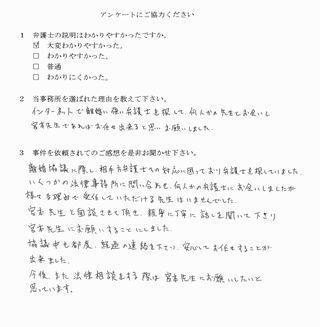 アンケートにご協力ください
1 弁護士の説明はわかりやすかったですか。
☑ 大変わかりやすかった。
□ わかりやすかった。
□ 普通
□ わかりにくかった。
2 当事務所を選ばれた理由を教えて下さい。
インターネットで離婚に強い弁護士を探して、何人かの先生とお会いし
宮本先生であればお任せ出来ると思いお願いしました。
3 事件を依頼されてのご感想を是非お聞かせ下さい。
離婚協議に際し、相手方弁護士への対応に困っており弁護士を探していました。
いくつかの法律事務所に問い合わせ、何人かの弁護士にお会いしましたが
様々な理由で受任していただける先生はいませんでした。
宮本先生と面談させて頂き、親身に丁寧に話しを聞いて下さり
宮本先生にお願いすることにしました。
協議中も都度、経過の連絡を下さり、安心してお任せすることが
出来ました。
今後、また法律相談をする際は宮本先生にお願いしたいと
思っています。